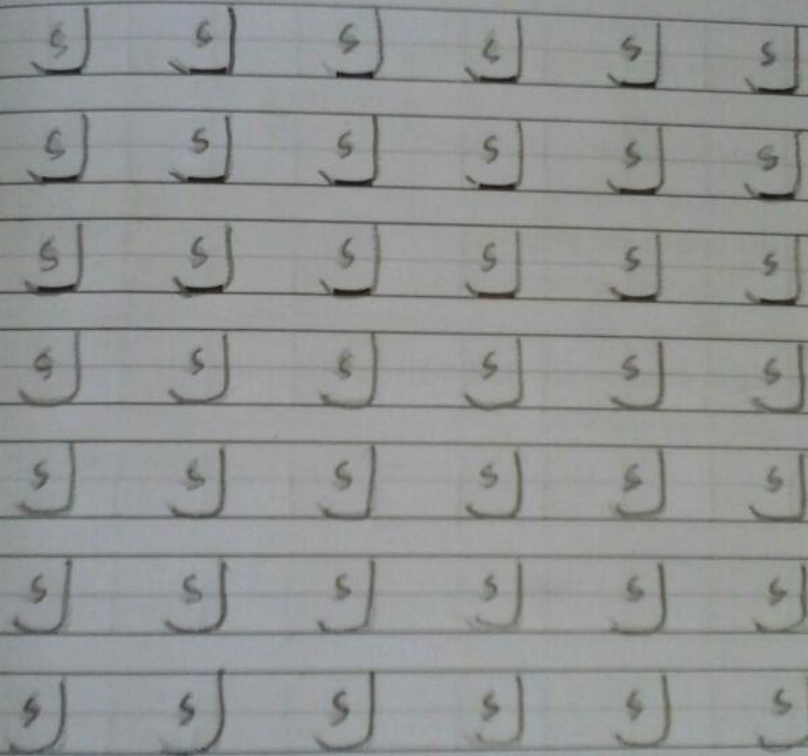 ك ك ك ك ك ك
ك ك ك ك ك ك
ك ك ك ك ك ك
ك ك ك ك ك ك
ك ك ك ك ك ك
ك ك ك ك ك ك
ك ك ك ك ك ك